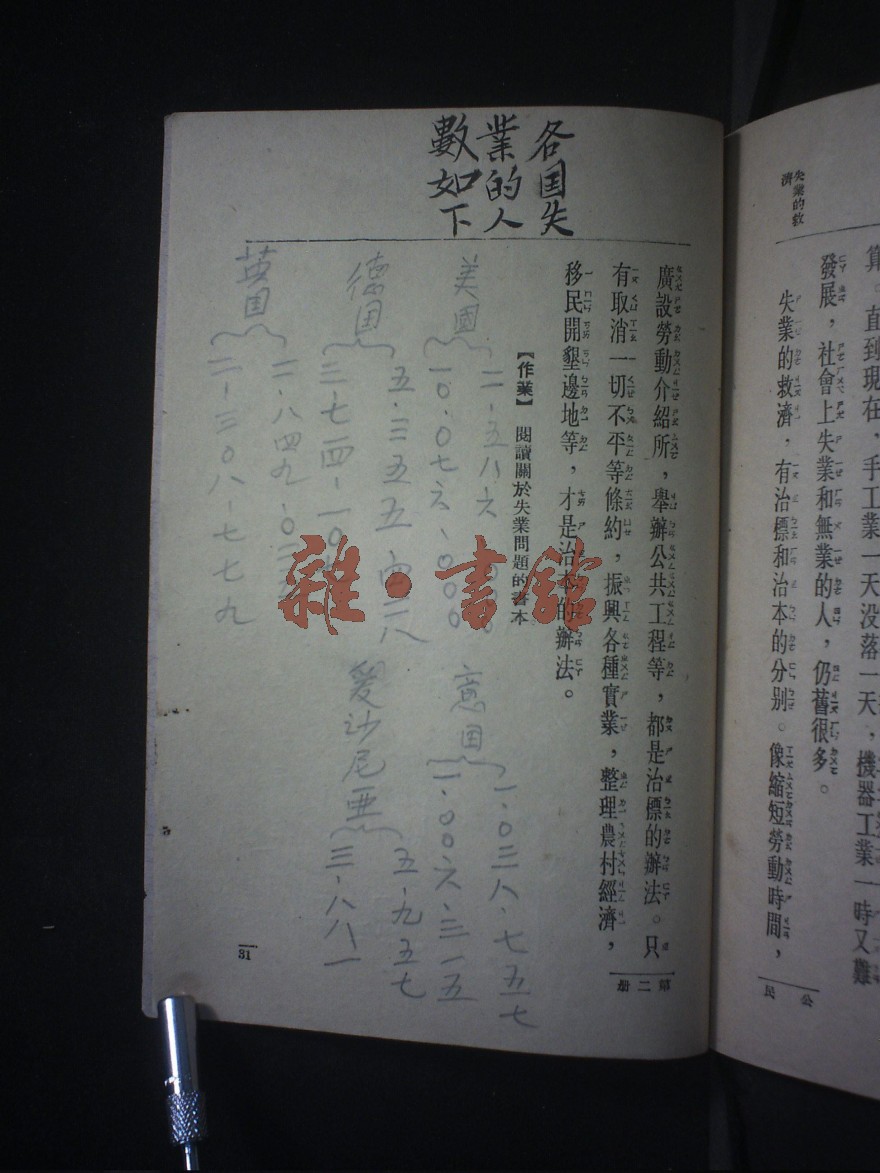 算。直到現在，手工業一天没落一天，機器工業一時又難
發展，社會上失業和無業的人，仍舊很多。
失業的救濟，有治標和治本的分别。像縮短勞動時間，
失業的救
濟
公民
廣設勞動介紹所，舉辦公共工程等，都是治標的辦法。只
有取消一切不平等條約，振興各種實業，整理農村經濟，
移民開墾邊地等，才是治本的辦法。
【作業】 閱讀關於失業問題的書本
第二册
31
各国失
業的人
數如下
美國
一〇·〇七六·〇〇〇
德国
五·三五五·四二八
英国
二·三〇八·七七九
意国
一·〇三八·七五七
一·〇〇六·三一五
愛沙尼亜
五·九五七
三·八八一
雜·書館